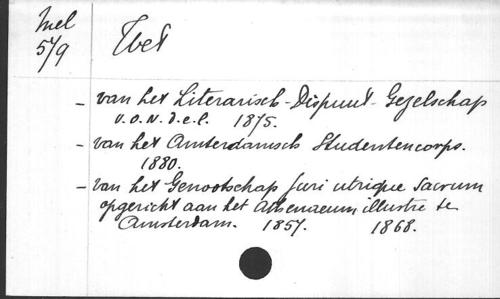 Mel
5/9
Wet
- van het Literarisch-Dispuut-Gezelschap
V.O.N.D.E.L. 1875.
- van het Amsterdamsch Studentencorps.
1880.
- van het Genootschap Juri utrique Sacrum
opgericht aan het Athenaeum illustre te
Amsterdam. 1857. 1868.